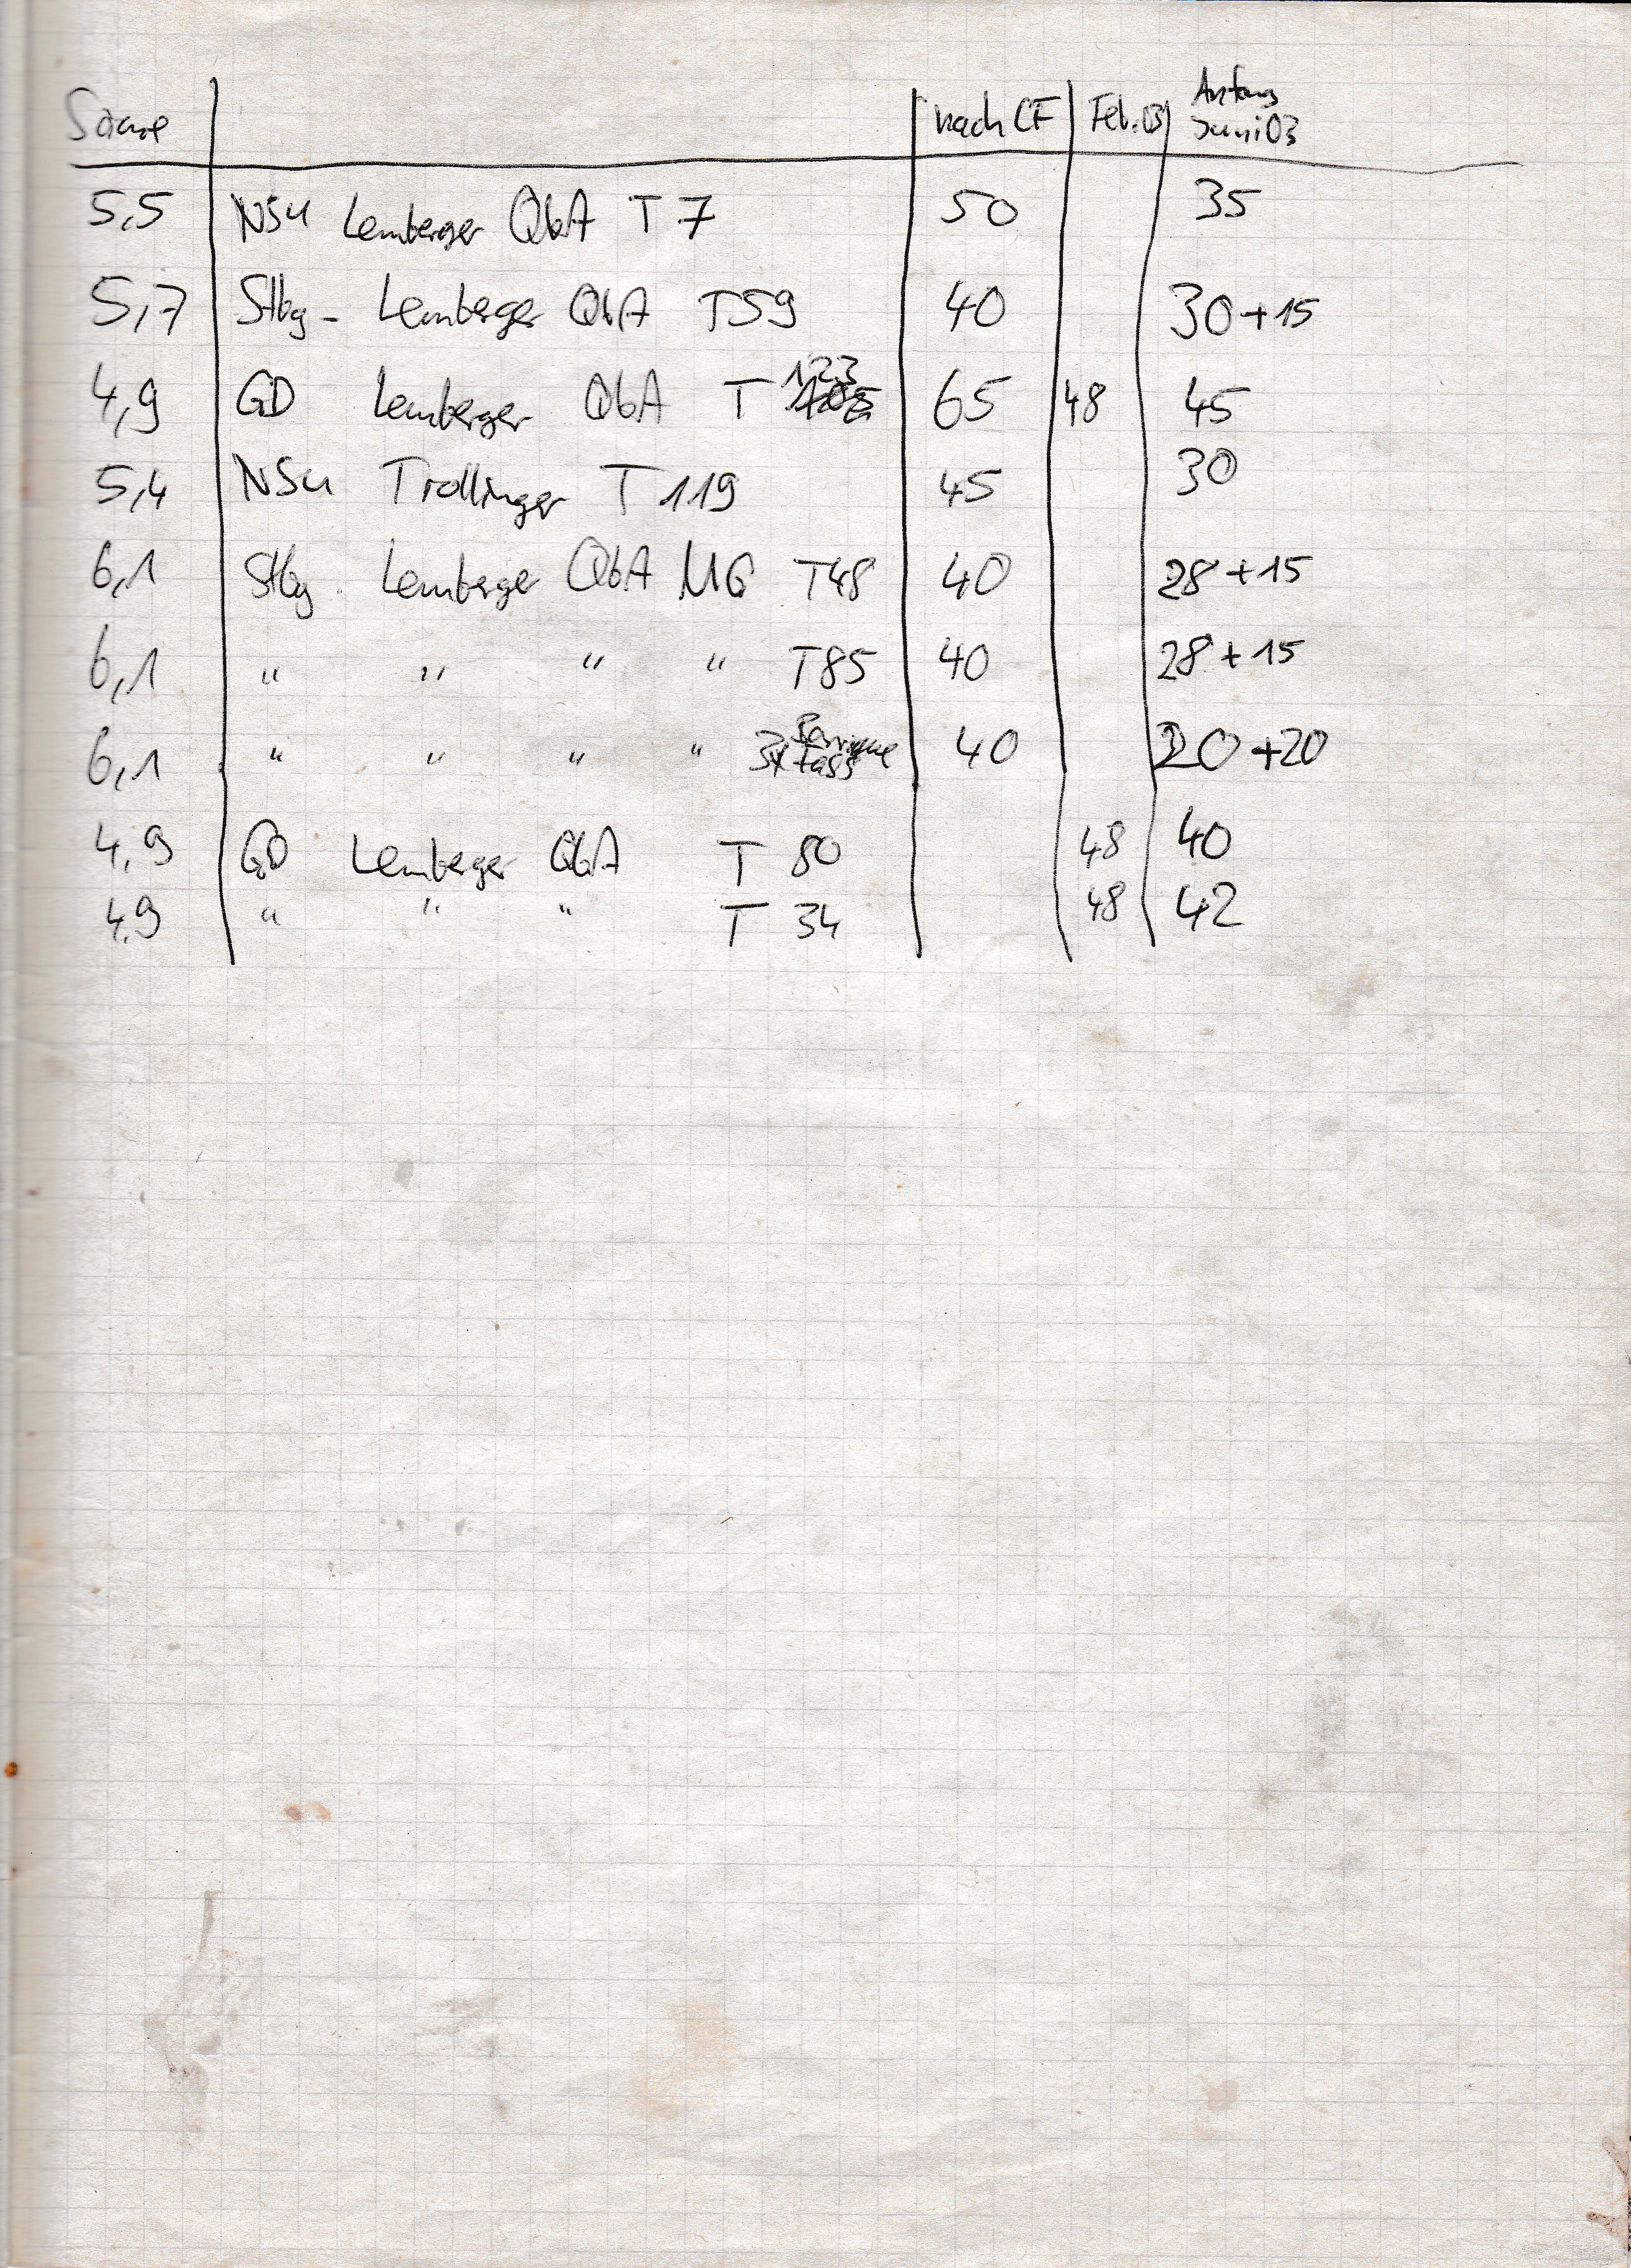 Säure nach CF Feb.03 Anfang Juni 03
5,5 NSU Lemberger QbA T 7 50 35
5,7 Stbg - Lemberger QbA T59 40 30+15
4,9 GD Lemberger QbA T 123 65 48 45
5,4 NSU Trollinger T 119 45 30
6,1 Stbg. Lemberger QbA MG T48 40 28+15
6,1 " " " " T85 40 28+15
6,1 " " " " 3x Barrique Fass 40 20+20
4,9 GD Lemberger QbA T 80 48 40
4,9 " " " T 34 48 42